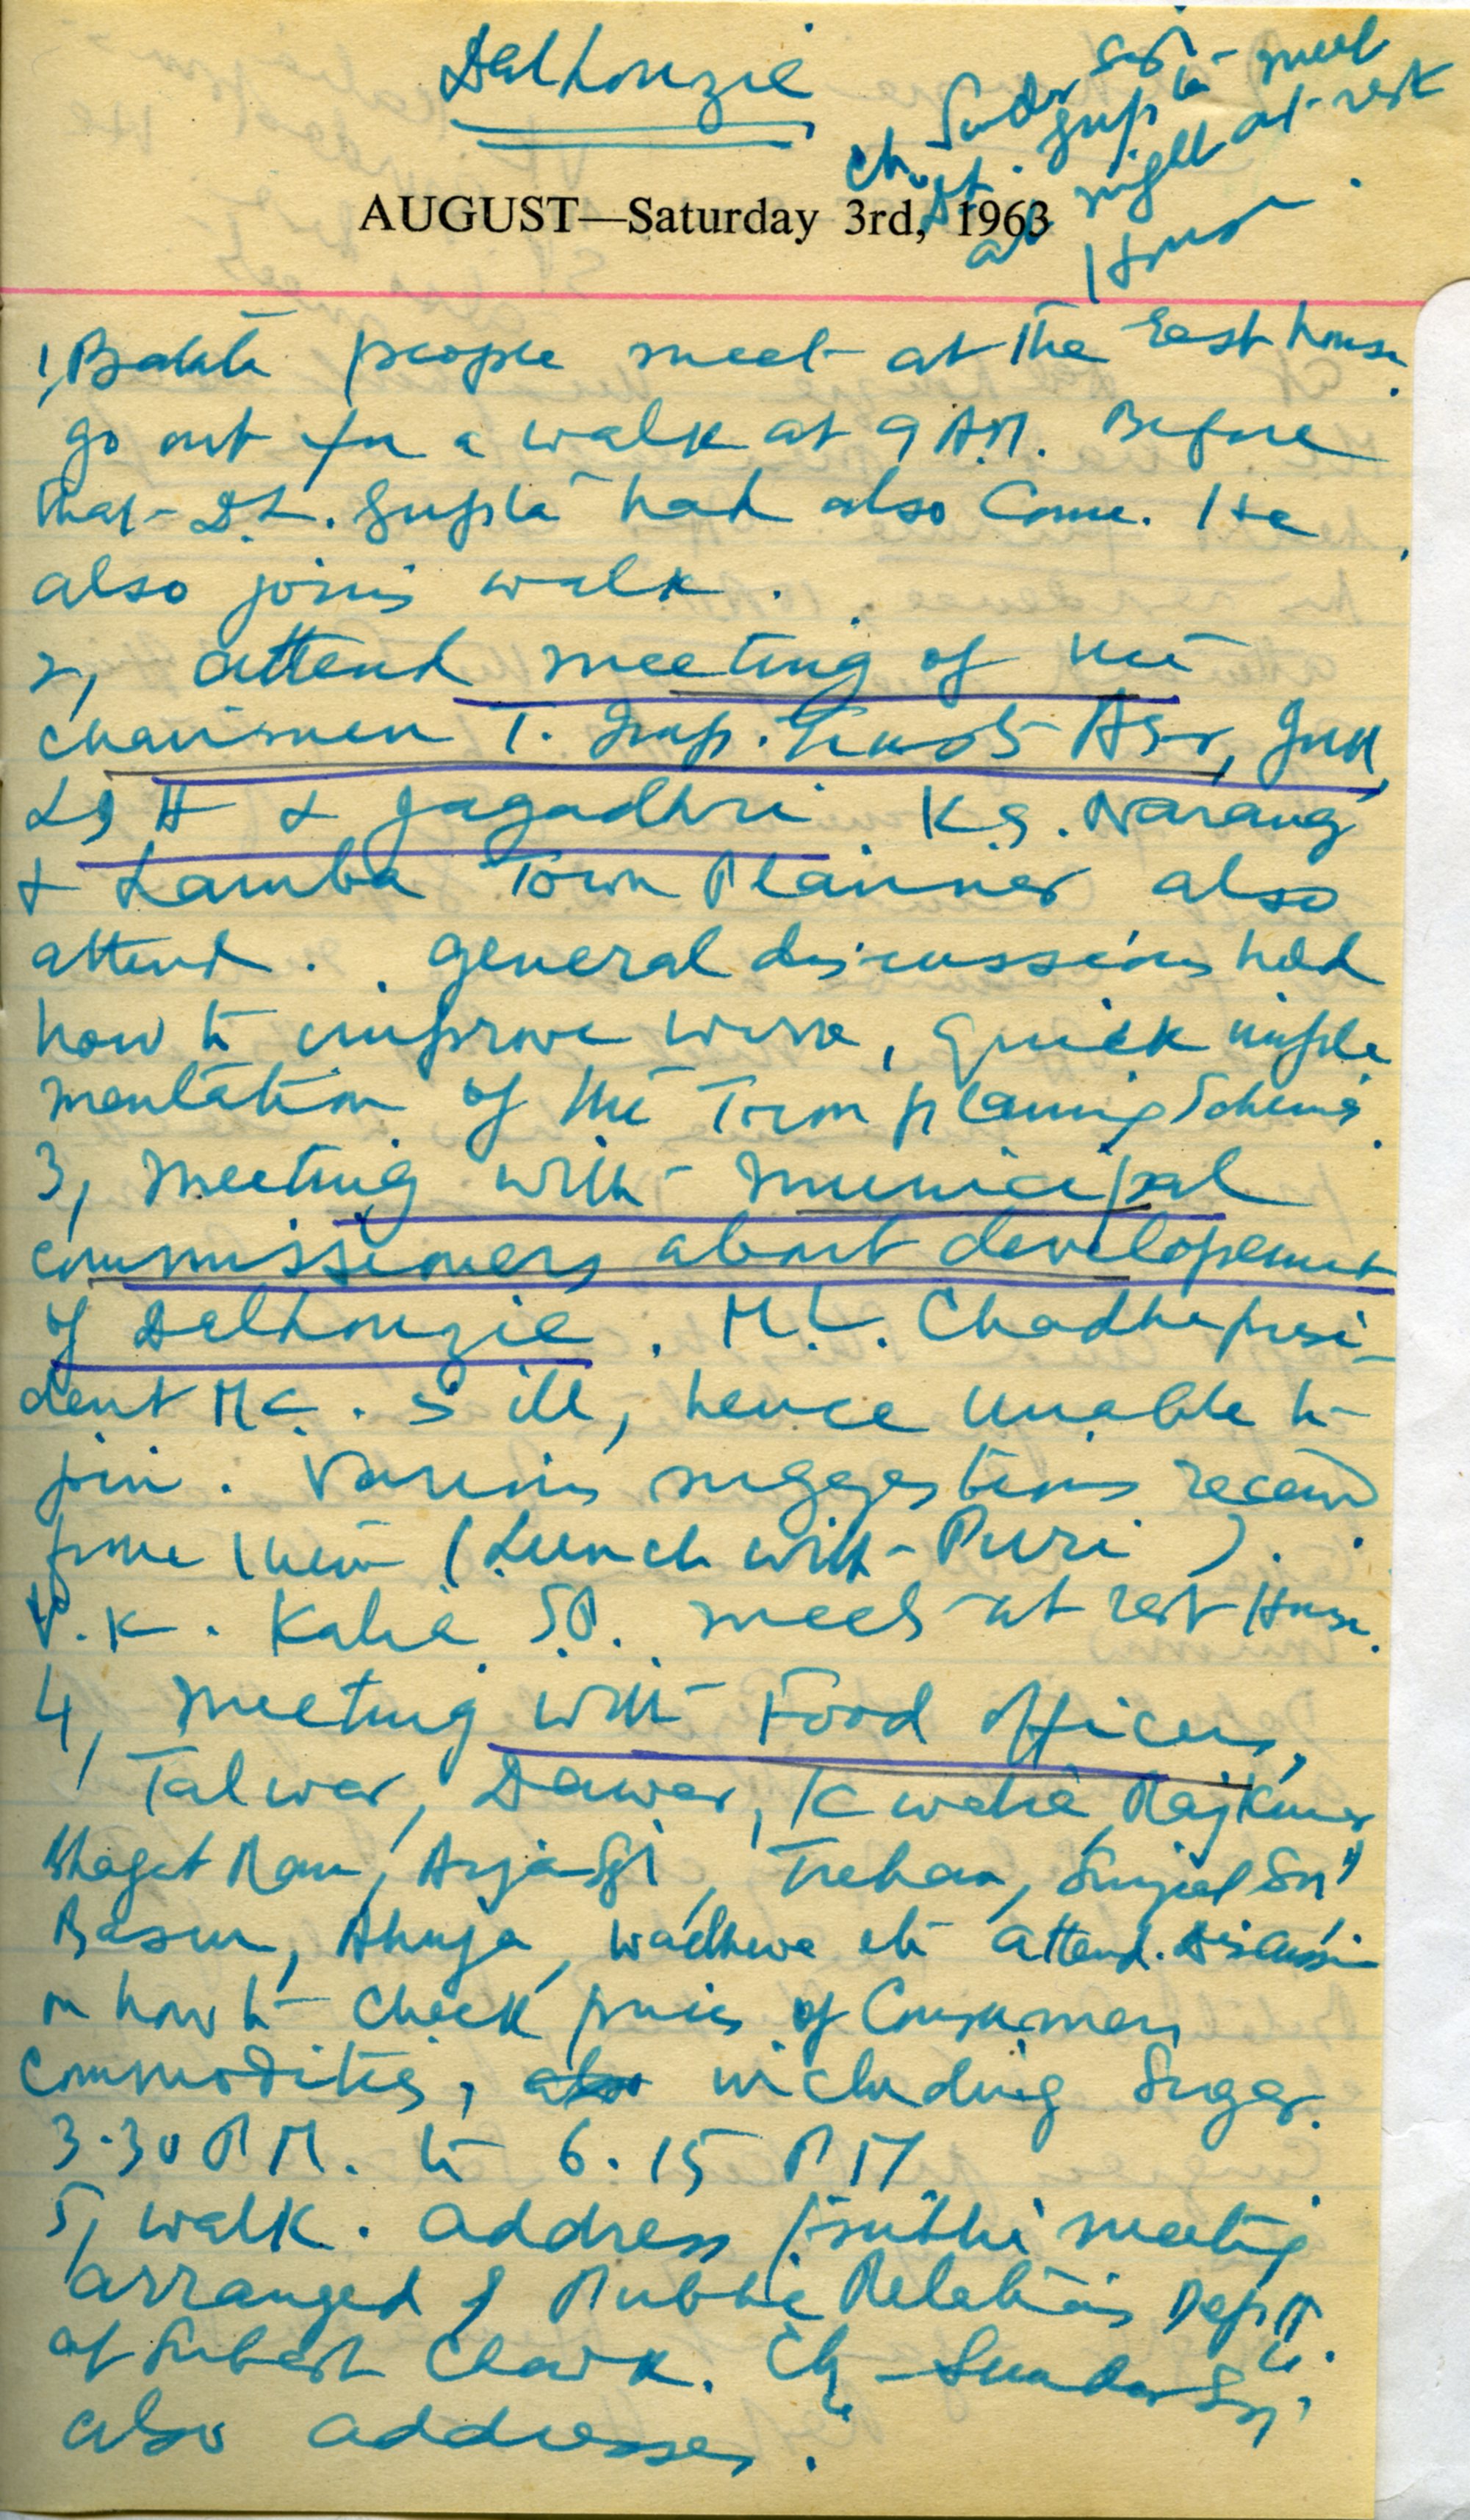 Dalhouzie
Ch. Sunder Singh
Gupta meet
at night at rest
House.
AUGUST—Saturday 3rd, 1963
1, people meet at the rest house.
go out for a walk at 9 A.M. Before
that D.L. Gupta had also Come. He
also joins walk.
2, attend meeting of the
chairmen T. Imp. Trusts ASr, Jull,
& Jagadhri K.S. Narang
& Lamba Town Planner also
attend. general discussions held
how to improve work, quick imple
mentation of the Town planning Schemes.
3, meeting with municipal
commissioners about developement
of Dalhouzie. M.L. Chadha presi-
dent M.C. is ill, hence unable to
join. Various suggestions received
from them (Lunch with Puri).
V.K. Kalia S.P. meets at rest House.
4, meeting with Food officers,
Talwar, Dawar, Rajkumar
Bhagat Ram, Trehan,
Ahuja, Wadhwa etc attend. discussion
on how to check prices of Consumers
Commodities, also including Sugar.
3.30 P.M. to 6.15 P.M
5, walk. address meeting
arranged by Public Relations Deptt.
at Subash Chowk. Ch. Sunder Singh
also addresses.